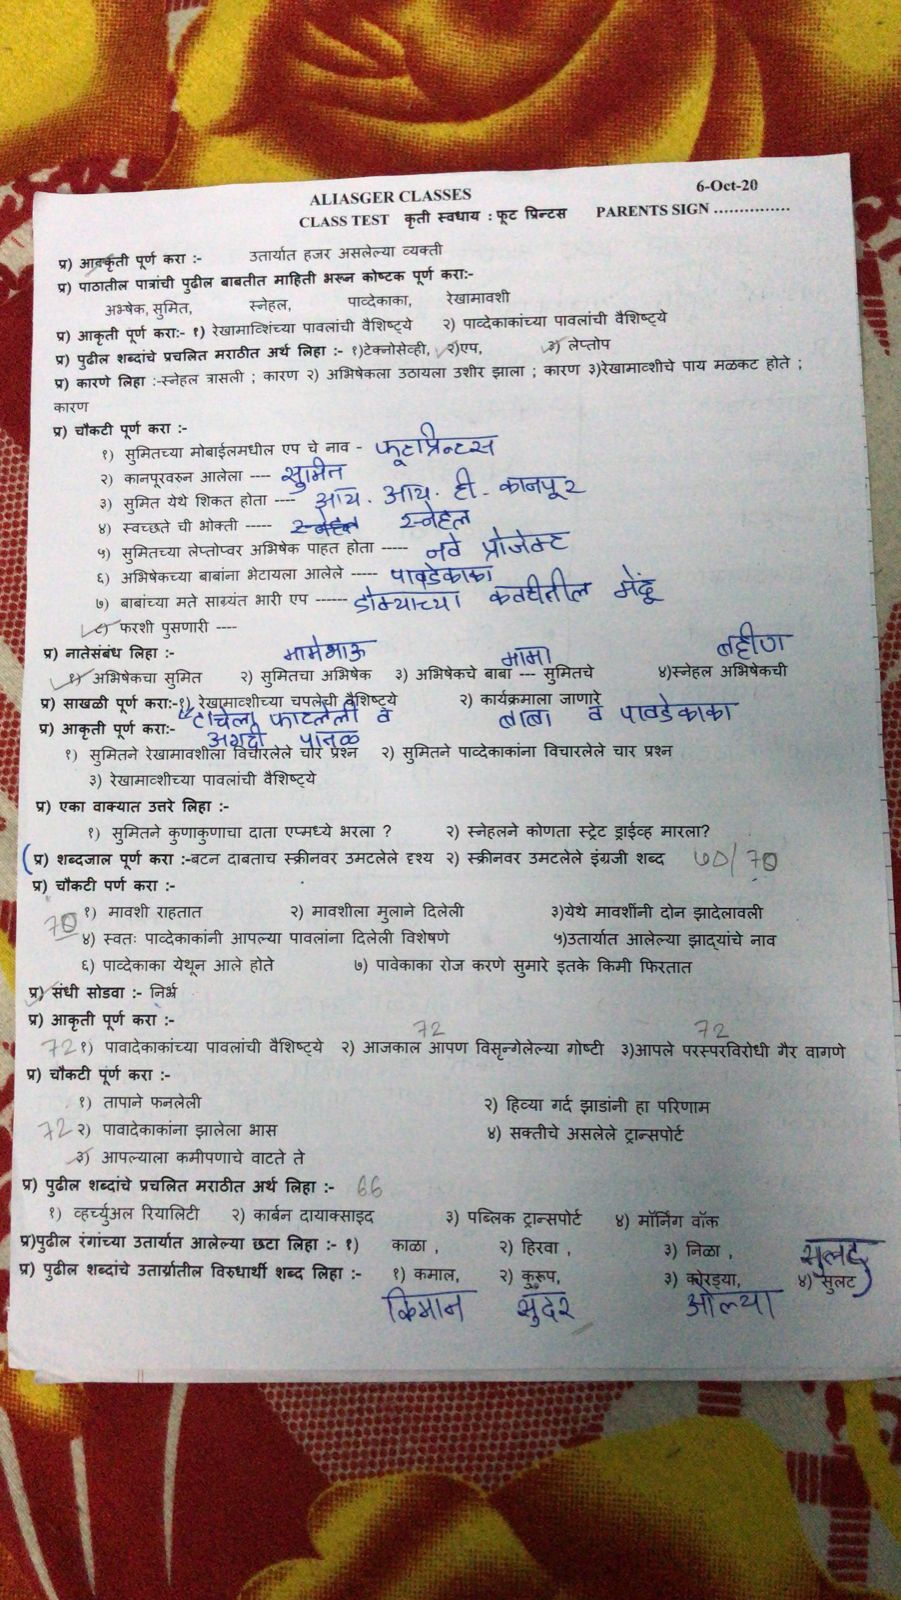 ALIASGER CLASSES 6-Oct-20
CLASS TEST कृती स्वधाय : फूट प्रिन्टस PARENTS SIGN ...............
प्र) आकृती पूर्ण करा :- उतार्यात हजर असलेल्या व्यक्ती
प्र) पाठातील पात्रांची पुढील बाबतीत माहिती भरुन कोष्टक पूर्ण करा:-
अभ्षेक, सुमित, स्नेहल, पाव्देकाका, रेखामावशी
प्र) आकृती पूर्ण करा:- १) रेखामाव्शिंच्या पावलांची वैशिष्ट्ये २) पाव्देकाकांच्या पावलांची वैशिष्ट्ये
प्र) पुढील शब्दांचे प्रचलित मराठीत अर्थ लिहा :- १)टेक्नोसेव्ही, २)एप, ३) लेप्तोप
प्र) कारणे लिहा :-स्नेहल त्रासली ; कारण २) अभिषेकला उठायला उशीर झाला ; कारण ३)रेखामाव्शीचे पाय मळकट होते ;
कारण
प्र) चौकटी पूर्ण करा :-
१) सुमितच्या मोबाईलमधील एप चे नाव - फूटप्रिन्टस
२) कानपूरवरुन आलेला ---- सुमित
३) सुमित येथे शिकत होता ---- आय. आय. टी. कानपूर
४) स्वच्छते ची भोक्ती ----- स्नेहल स्नेहल
५) सुमितच्या लेप्तोप्वर अभिषेक पाहत होता ----- नवे प्रोजेक्ट
६) अभिषेकच्या बाबांना भेटायला आलेले ----- पावडेकाका
७) बाबांच्या मते साग्र्यंत भारी एप ------ डोक्याच्या कवटीतील मेंदू
८) फरशी पुसणारी ----
प्र) नातेसंबंध लिहा :- मामेभाऊ मामा बहीण
१) अभिषेकचा सुमित २) सुमितचा अभिषेक ३) अभिषेकचे बाबा --- सुमितचे ४)स्नेहल अभिषेकची
प्र) साखळी पूर्ण करा:-१) रेखामाव्शीच्या चपलेची वैशिष्ट्ये २) कार्यक्रमाला जाणारे
प्र) आकृती पूर्ण करा:- टाचेला फाटलेली व बाबा व पावडेकाका
अगदी पातळ
१) सुमितने रेखामावशीला विचारलेले चार प्रश्न २) सुमितने पाव्देकाकांना विचारलेले चार प्रश्न
३) रेखामाव्शीच्या पावलांची वैशिष्ट्ये
प्र) एका वाक्यात उत्तरे लिहा :-
१) सुमितने कुणाकुणाचा दाता एप्मध्ये भरला ? २) स्नेहलने कोणता स्ट्रेट ड्राईव्ह मारला?
प्र) शब्दजाल पूर्ण करा :-बटन दाबताच स्क्रीनवर उमटलेले दृश्य २) स्क्रीनवर उमटलेले इंग्रजी शब्द 70/70
प्र) चौकटी पर्ण करा :-
70 १) मावशी राहतात २) मावशीला मुलाने दिलेली ३)येथे मावर्शीनी दोन झादेलावली
४) स्वतः पाव्देकाकांनी आपल्या पावलांना दिलेली विशेषणे ५)उतार्यात आलेल्या झाद्यांचे नाव
६) पाव्देकाका येथून आले होते ७) पावेकाका रोज करणे सुमारे इतके किमी फिरतात
प्र) संधी सोडवा :- निर्भ्र
प्र) आकृती पूर्ण करा :- 72 72
72 १) पावादेकाकांच्या पावलांची वैशिष्ट्ये २) आजकाल आपण विसृन्गेलेल्या गोष्टी ३)आपले परस्परविरोधी गैर वागणे
प्र) चौकटी पूंर्ण करा :-
१) तापाने फनलेली २) हिव्या गर्द झाडांनी हा परिणाम
72 २) पावादेकाकांना झालेला भास ४) सक्तीचे असलेले ट्रान्सपोर्ट
३) आपल्याला कमीपणाचे वाटते ते
प्र) पुढील शब्दांचे प्रचलित मराठीत अर्थ लिहा :- 66
१) व्हर्च्युअल रियालिटी २) कार्बन दायाक्साइद ३) पब्लिक ट्रान्सपोर्ट ४) मॉर्निंग वॉक
प्र)पुढील रंगांच्या उतार्यात आलेल्या छटा लिहा :- १) काळा , २) हिरवा , ३) निळा ,
प्र) पुढील शब्दांचे उतार्य्रातील विरुधार्थी शब्द लिहा :- १) कमाल, २) कुरूप, ३) कोरड्या, ४) सुलट
किमान सुंदर ओल्या